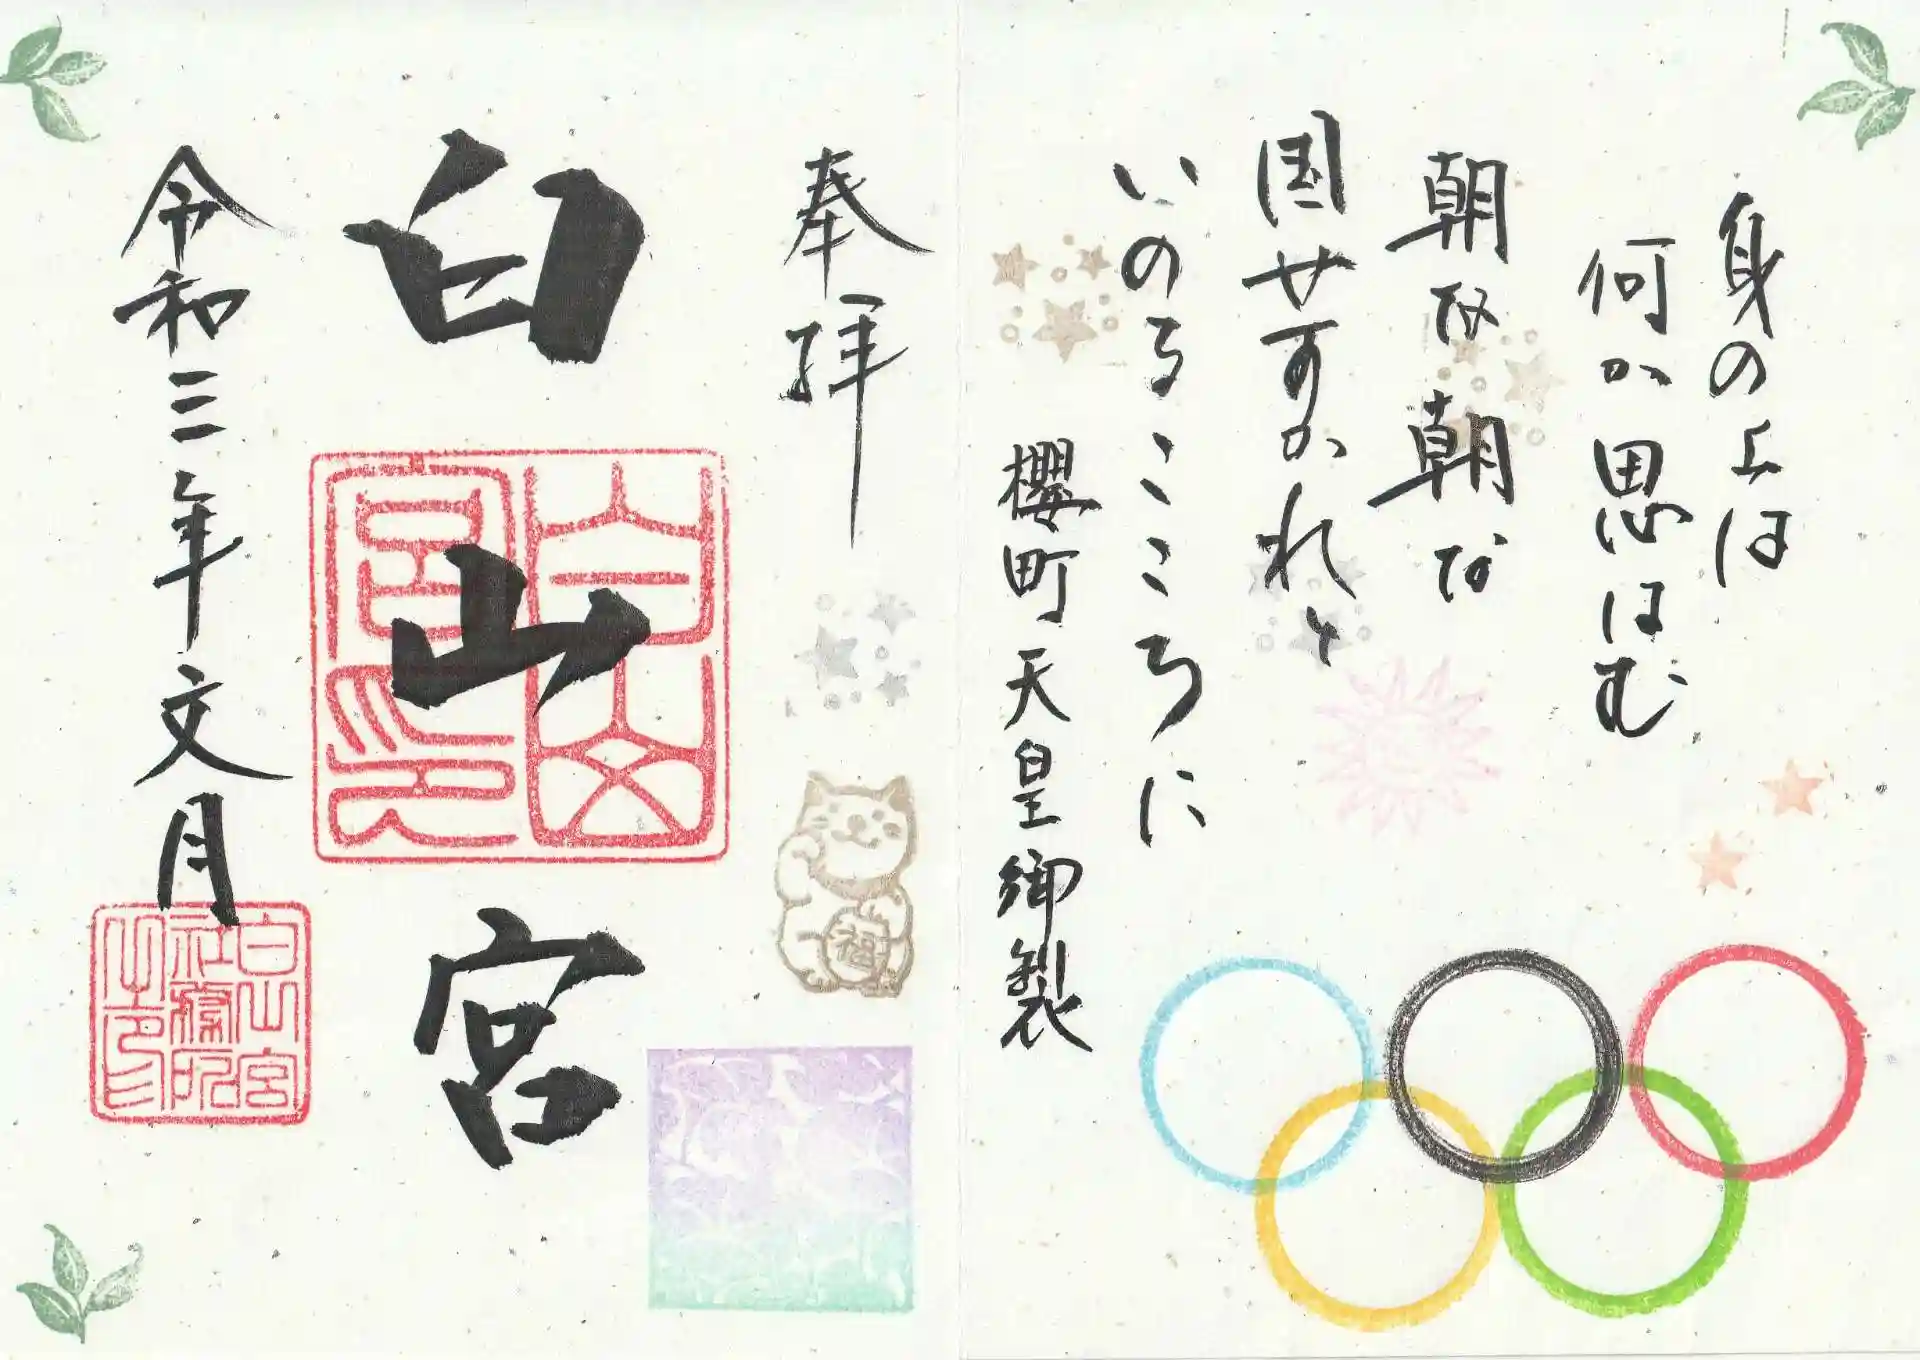 身の上は
何か思はむ
朝な朝な
国やすかれと
いのるこころに
櫻町天皇御製
奉拝
白山宮
令和三年文月
白山宮印
白山宮社務所之印
福